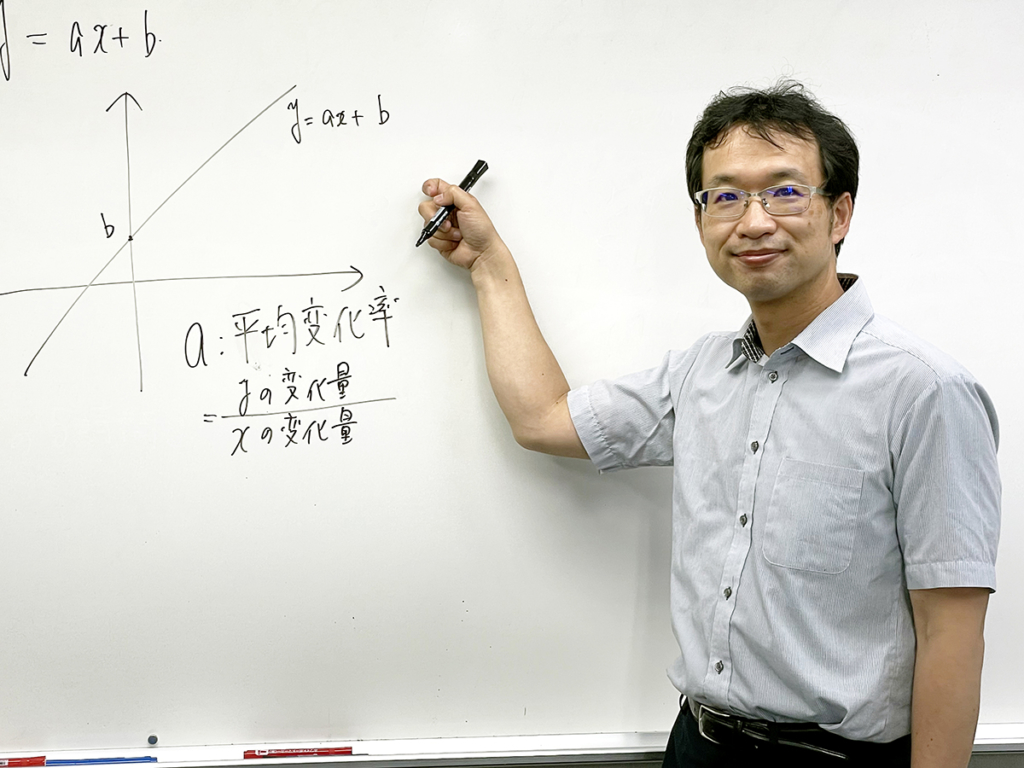 y = ax + b
y = ax + b
b
a : 平均変化率
= yの変化量
xの変化量